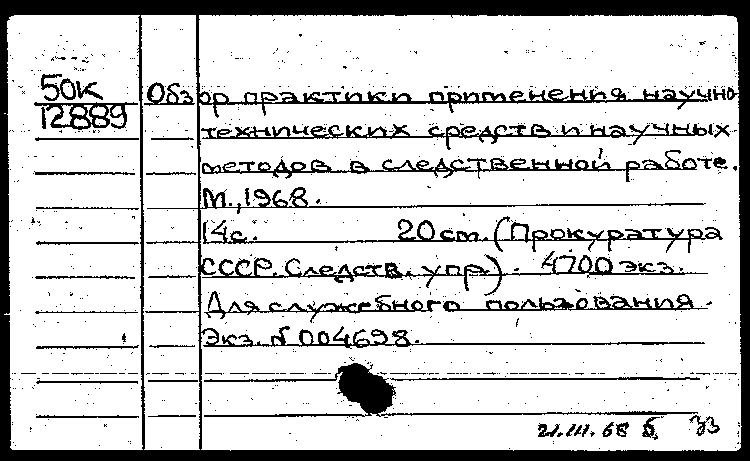 50К
12889
Обзор практики применения научно
технических средств и научных
методов в следственной работе.
М., 1968.
14с. 20 cm. (Прокуратура
СССР. Следств. упр). 4700 экз.
Для служебного пользования.
Экз. № 004698.
21.III.68 Б 33